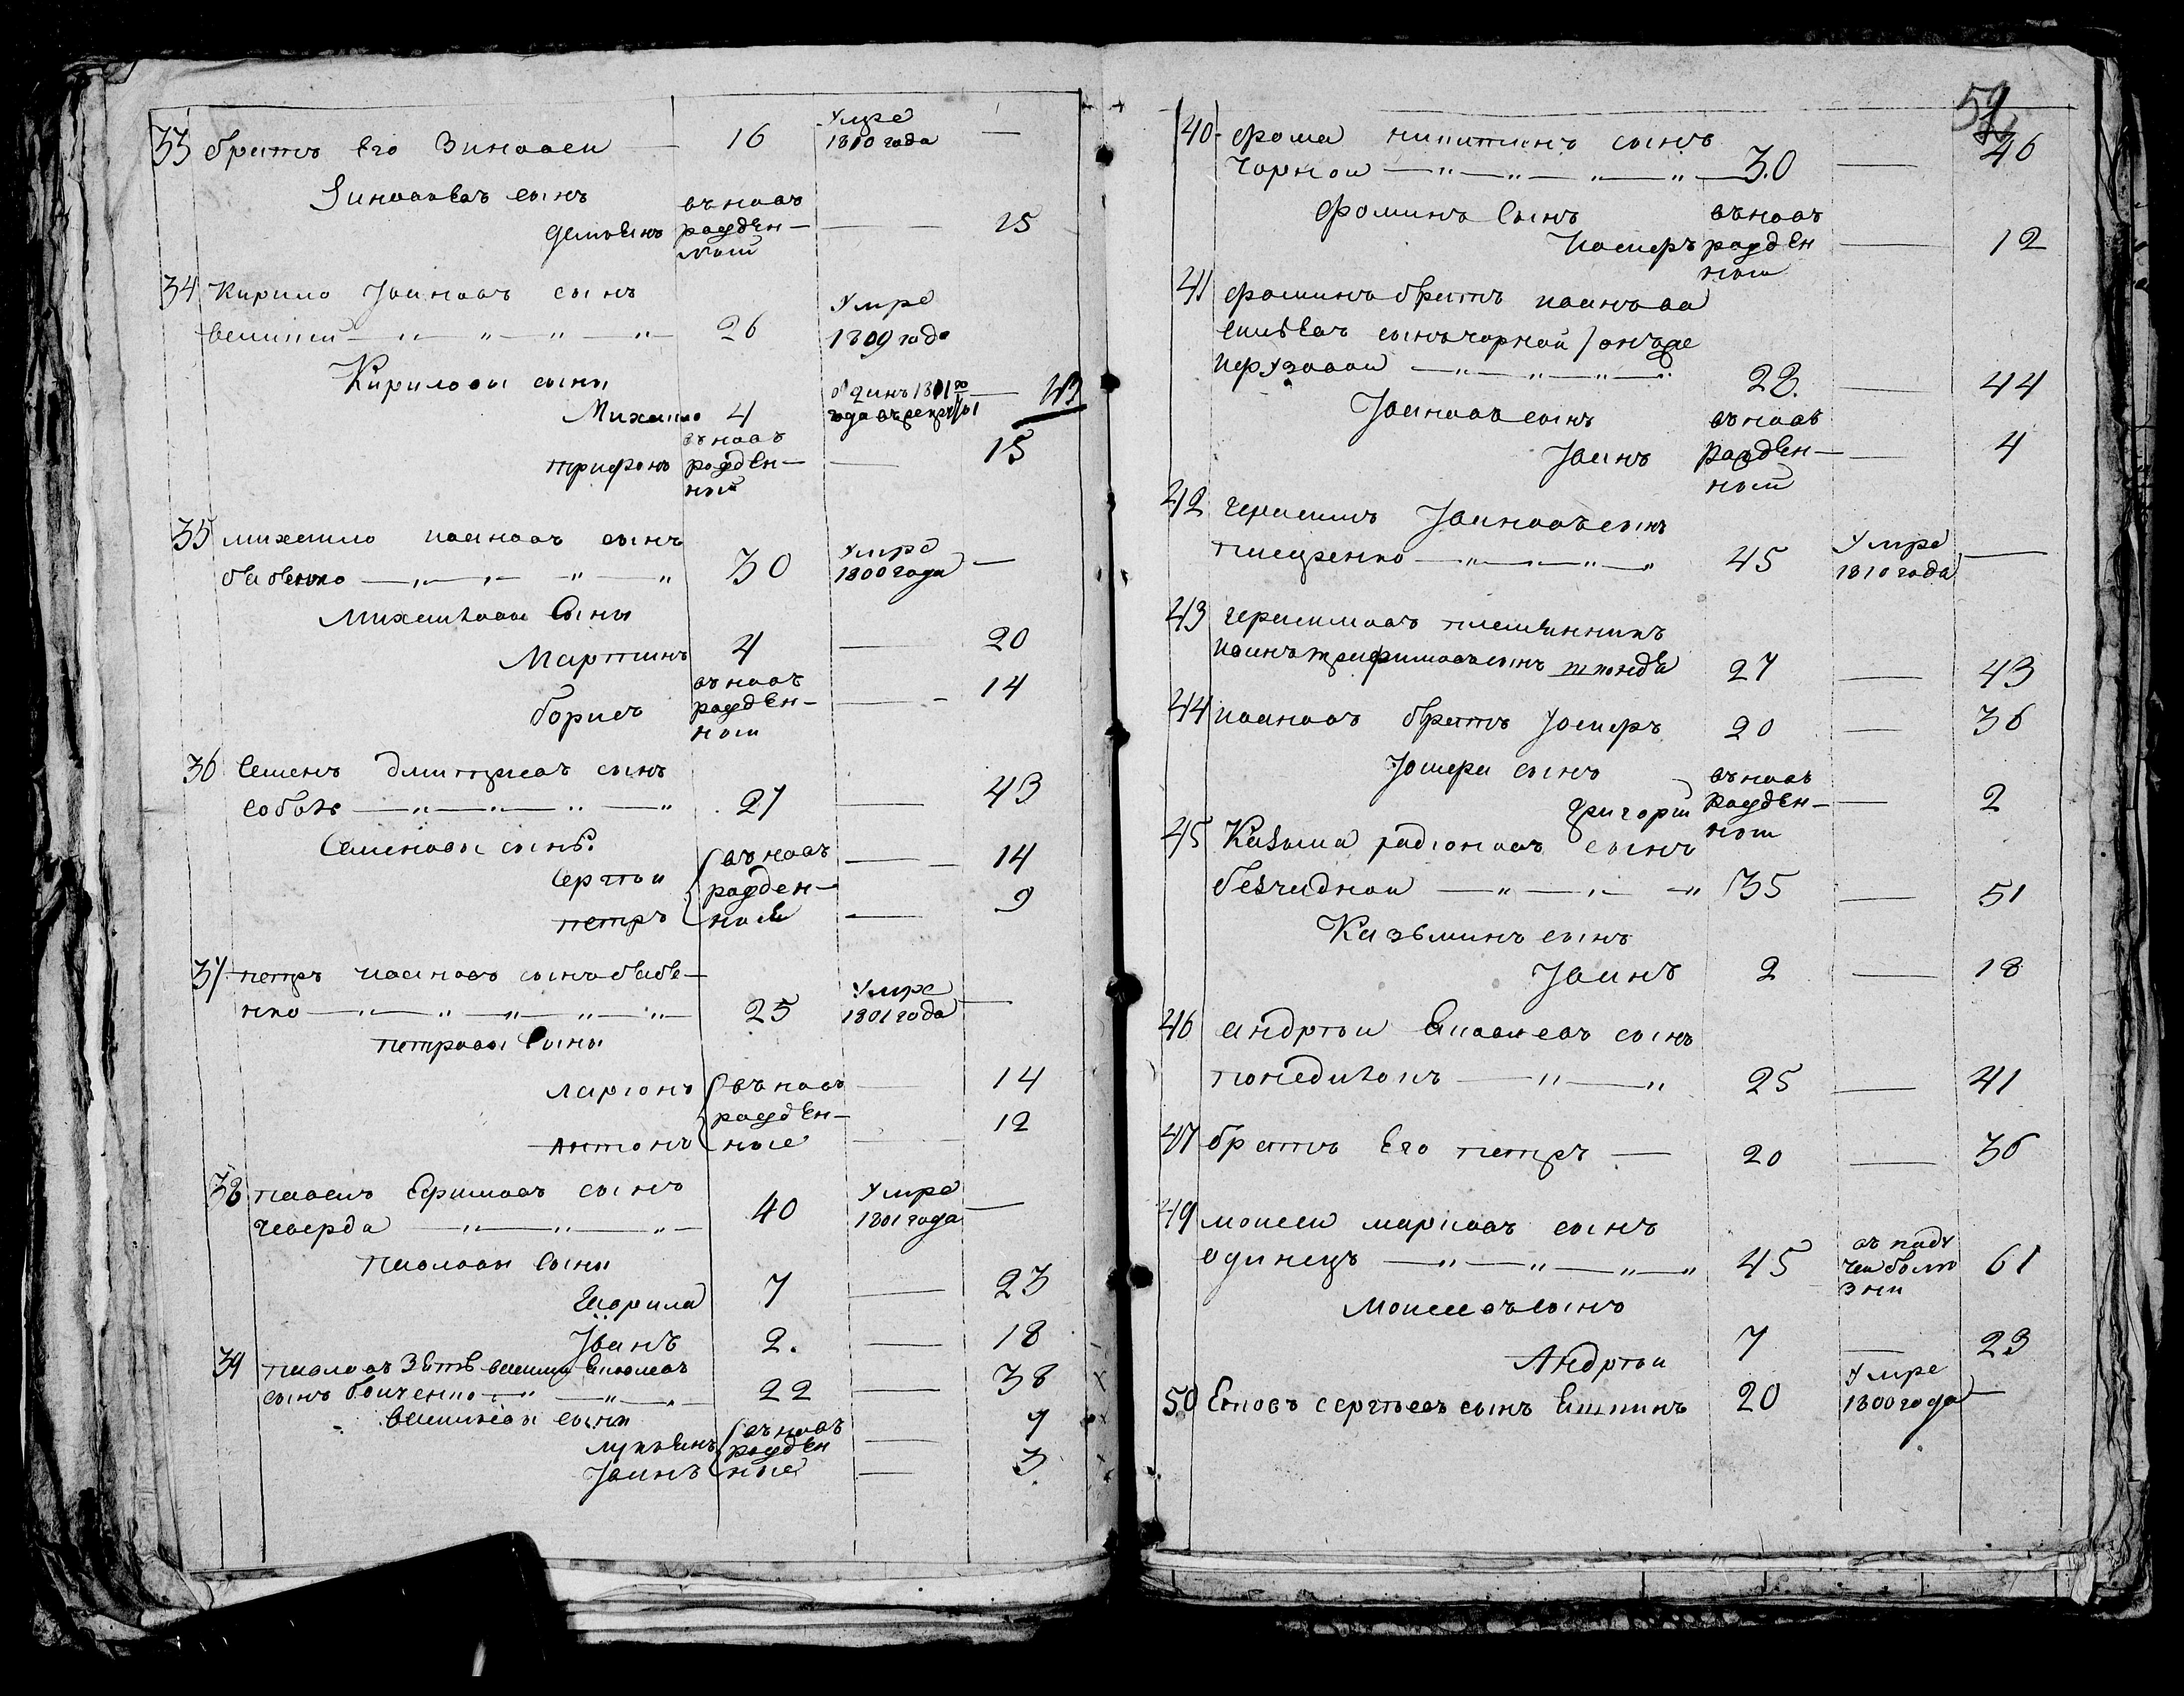 33 братъ его Зиновеи — 16 умре 1810 года —
Зиновьевъ сынъ
Демьянъ въновъ рожден- ной — 15
34 Кирило Ивановъ сынъ
26 умре 1809 года
Кириловы сыны
Михаило 4
Трифонъ въновъ рожден- ной — 15
35 михаило ивановъ сынъ
бабенко 30 умре 1800 года —
Михаиловы сыны
Мартинъ 4 — 20
борисъ въновъ рожден- ной — 14
36 Семенъ дмитриевъ сынъ
соболь 27 — 43
Семеновы сынъ
Сергѣи въновъ рожден- — 14
петръ ные — 9
37 петръ ивановъ сынъ бабе-
нко 25 умре 1801 года —
петровы сыны
ларіонъ въновъ рожден- — 14
Антонъ ные — 12
38 павелъ Ефимовъ сынъ
40 умре 1801 года —
павловы сыны
Гаврила 7 — 23
Іванъ 2. — 18
39 павловъ зять василий
сынъ бойченко 22 — 38
васильевы сыны
лукьянъ въновъ рожден — 7
Іванъ ные — 3
52
40 фома никитинъ сынъ
чорной 30 — 46
фоминъ сынъ
Иосифъ въновъ рожден ной — 12
41 фоминъ братъ иванъ ва
сильевъ сынъ чорной / онъже
28. — 44
Ивановъ сынъ
Іванъ въновъ рожден- ной — 4
42 герасимъ Ивановъ сынъ
тищенко 45 умре 1810 года —
43 герасимовъ племянникъ
иванъ трифимовъ сынъ 27 — 43
44 ивановъ братъ Іосифъ 20 — 36
Іосифа сынъ
григорій въновъ рожден- ной — 2
45 Казьма радіоновъ сынъ
безчидной 35 — 51
Казьминъ сынъ
Іванъ 2 — 18
46 андрѣи сынъ
понедилокъ 25 — 41
47 братъ его петръ — 20 — 36
49 моисеи марковъ сынъ
одинецъ 45 въ паду чей болѣ зни 61
Моисеевъ сынъ
Андрѣи 7 — 23
50 сергѣевъ сынъ 20 умре 1800 года —